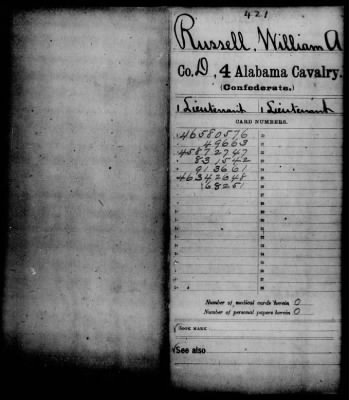 421
Russell, William A
Co. D, 4 Alabama Cavalry.
(Confederate.)
1 Lieutenant 1 Lieutenant
CARD NUMBERS.
46580576
49663
45872747
831542
913661
46342648
Number of medical cards herein 0
Number of personal papers herein 0
BOOK MARK
See also